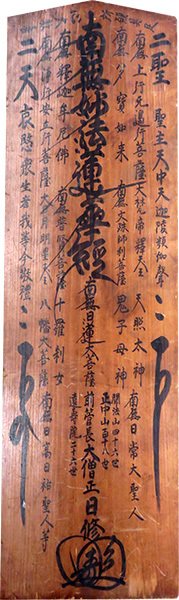 二聖 聖主天中天迦陵頻伽聲
南無上行無邊行菩薩 大梵帝釋天王 天照太神
南無多寶如来 南無文殊師利菩薩 鬼子母神 南無日常大聖人
南無妙法蓮華經 南無日蓮大菩薩
南無釋迦牟尼佛 南無普賢菩薩 十羅刹女
南無浄行安立行菩薩 大日月明星天王 八幡大菩薩 南無日高日祐聖人等
二天 哀愍衆生者我等今敬禮
開法山四十六世
正中山百十八世
前管長大僧正日修
遠壽院二十六世